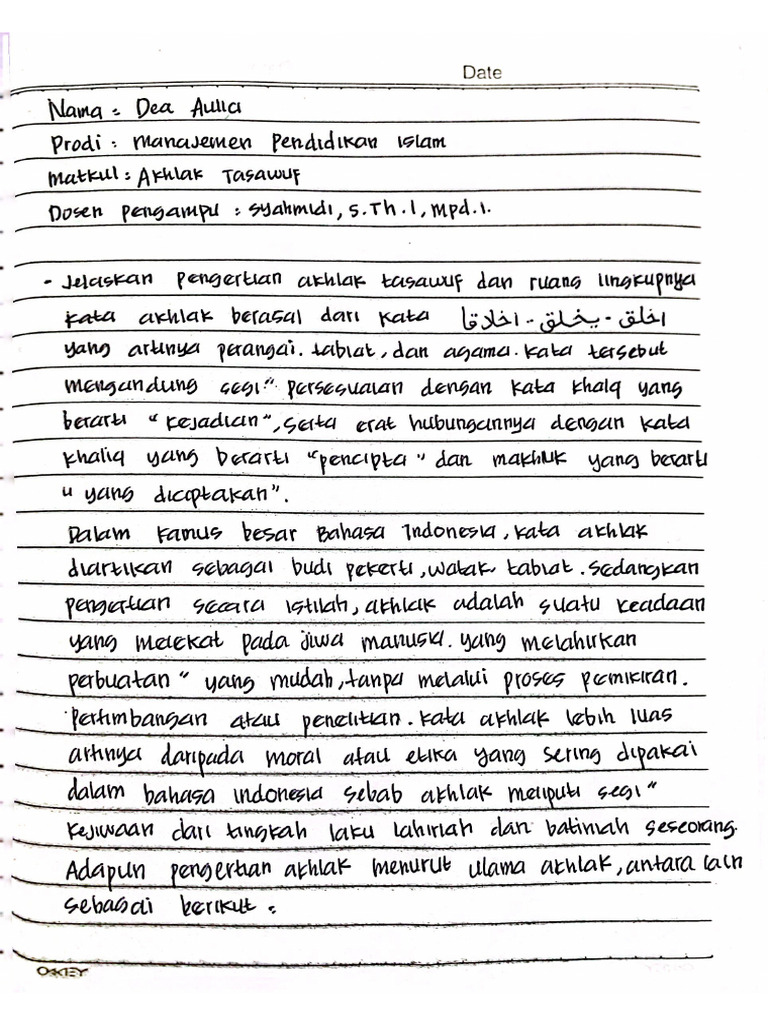 Date
Nama : Dea Aulia
Prodi : Manajemen Pendidikan Islam
Matkul : Akhlak Tasawuf
Dosen Pengampu : Syahmidi, S.Th.I, Mpd.I.
- Jelaskan pengertian akhlak tasawuf dan ruang lingkupnya
Kata akhlak berasal dari kata اخلق - يخلق - اخلاقا
yang artinya perangai. tabiat, dan agama. Kata tersebut
mengandung segi" persesuaian dengan kata khalq yang
berarti "kejadian", serta erat hubungannya dengan kata
khaliq yang berarti "pencipta" dan makhluk yang berarti
" yang diciptakan".
Dalam Kamus besar Bahasa Indonesia, kata akhlak
diartikan sebagai budi pekerti, watak tabiat. Sedangkan
pengertian secara istilah, akhlak adalah suatu keadaan
yang melekat pada jiwa manusia. yang melahirkan
perbuatan" yang mudah, tanpa melalui proses pemikiran.
Pertimbangan atau penelitian. Kata akhlak lebih luas
artinya daripada moral atau etika yang sering dipakai
dalam bahasa indonesia sebab akhlak meliputi segi"
kejiwaan dari tingkah laku lahiriah dan batiniah seseorang.
Adapun pengertian akhlak menurut ulama akhlak, antara lain
sebagai berikut :
OKEY